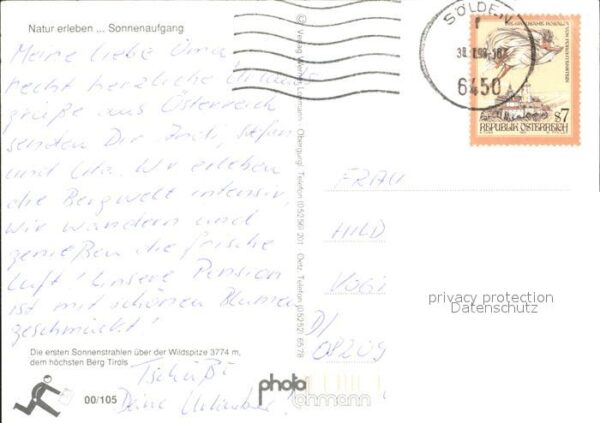 Natur erleben ... Sonnenaufgang
Meine liebe Oma
recht herzliche Urlaubs
grüße aus Österreich
senden Dir Andi, Stefan
und Uta. Wir erleben
die Bergwelt intensiv,
wir wandern und
genießen die frische
Luft! Unsere Pension
ist mit schönen Blumen
geschmückt!
Die ersten Sonnenstrahlen über der Wildspitze 3774 m,
dem höchsten Berg Tirols
Tschüß!
Deine Urlauber!
00/105
© Verlag Lohmann Obergurgl Telefon (05256) 201 Oetz, Telefon (05252) 6578
photo
lohmann
SÖLDEN
6450
S7
REPUBLIK ÖSTERREICH
FRAU
HILD
VOGT
D/
08209
privacy protection
Datenschutz